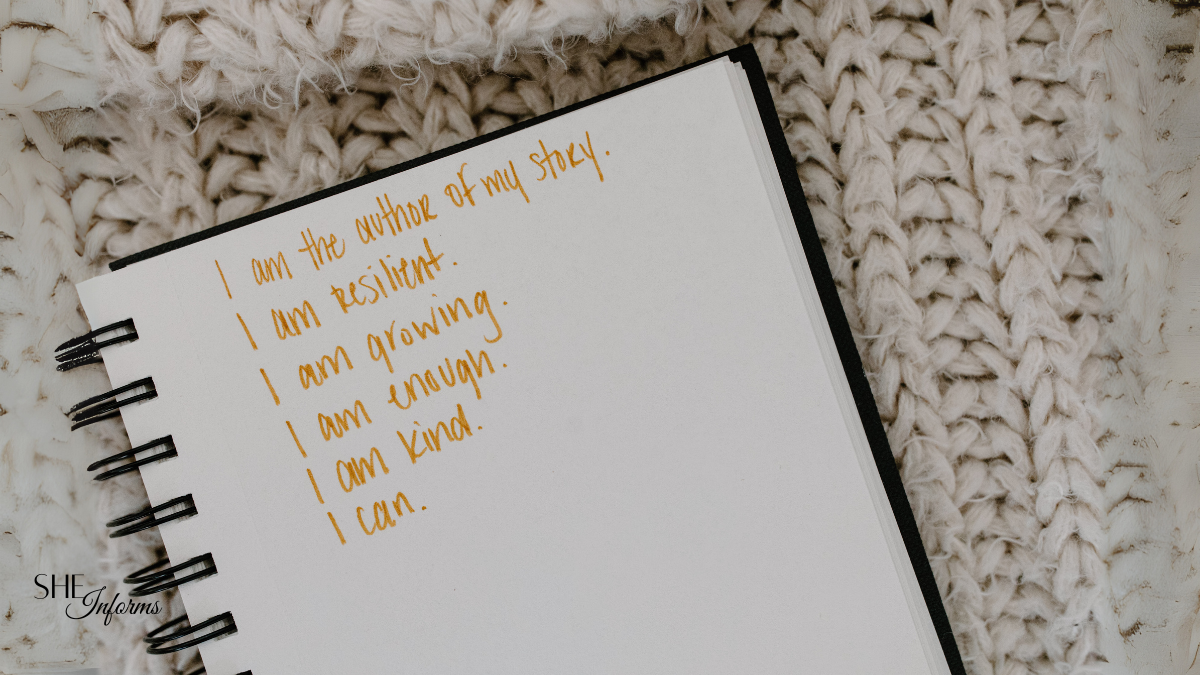 I am the author of my story.
I am resilient.
I am growing.
I am enough.
I am kind.
I can.
SHE
Informs